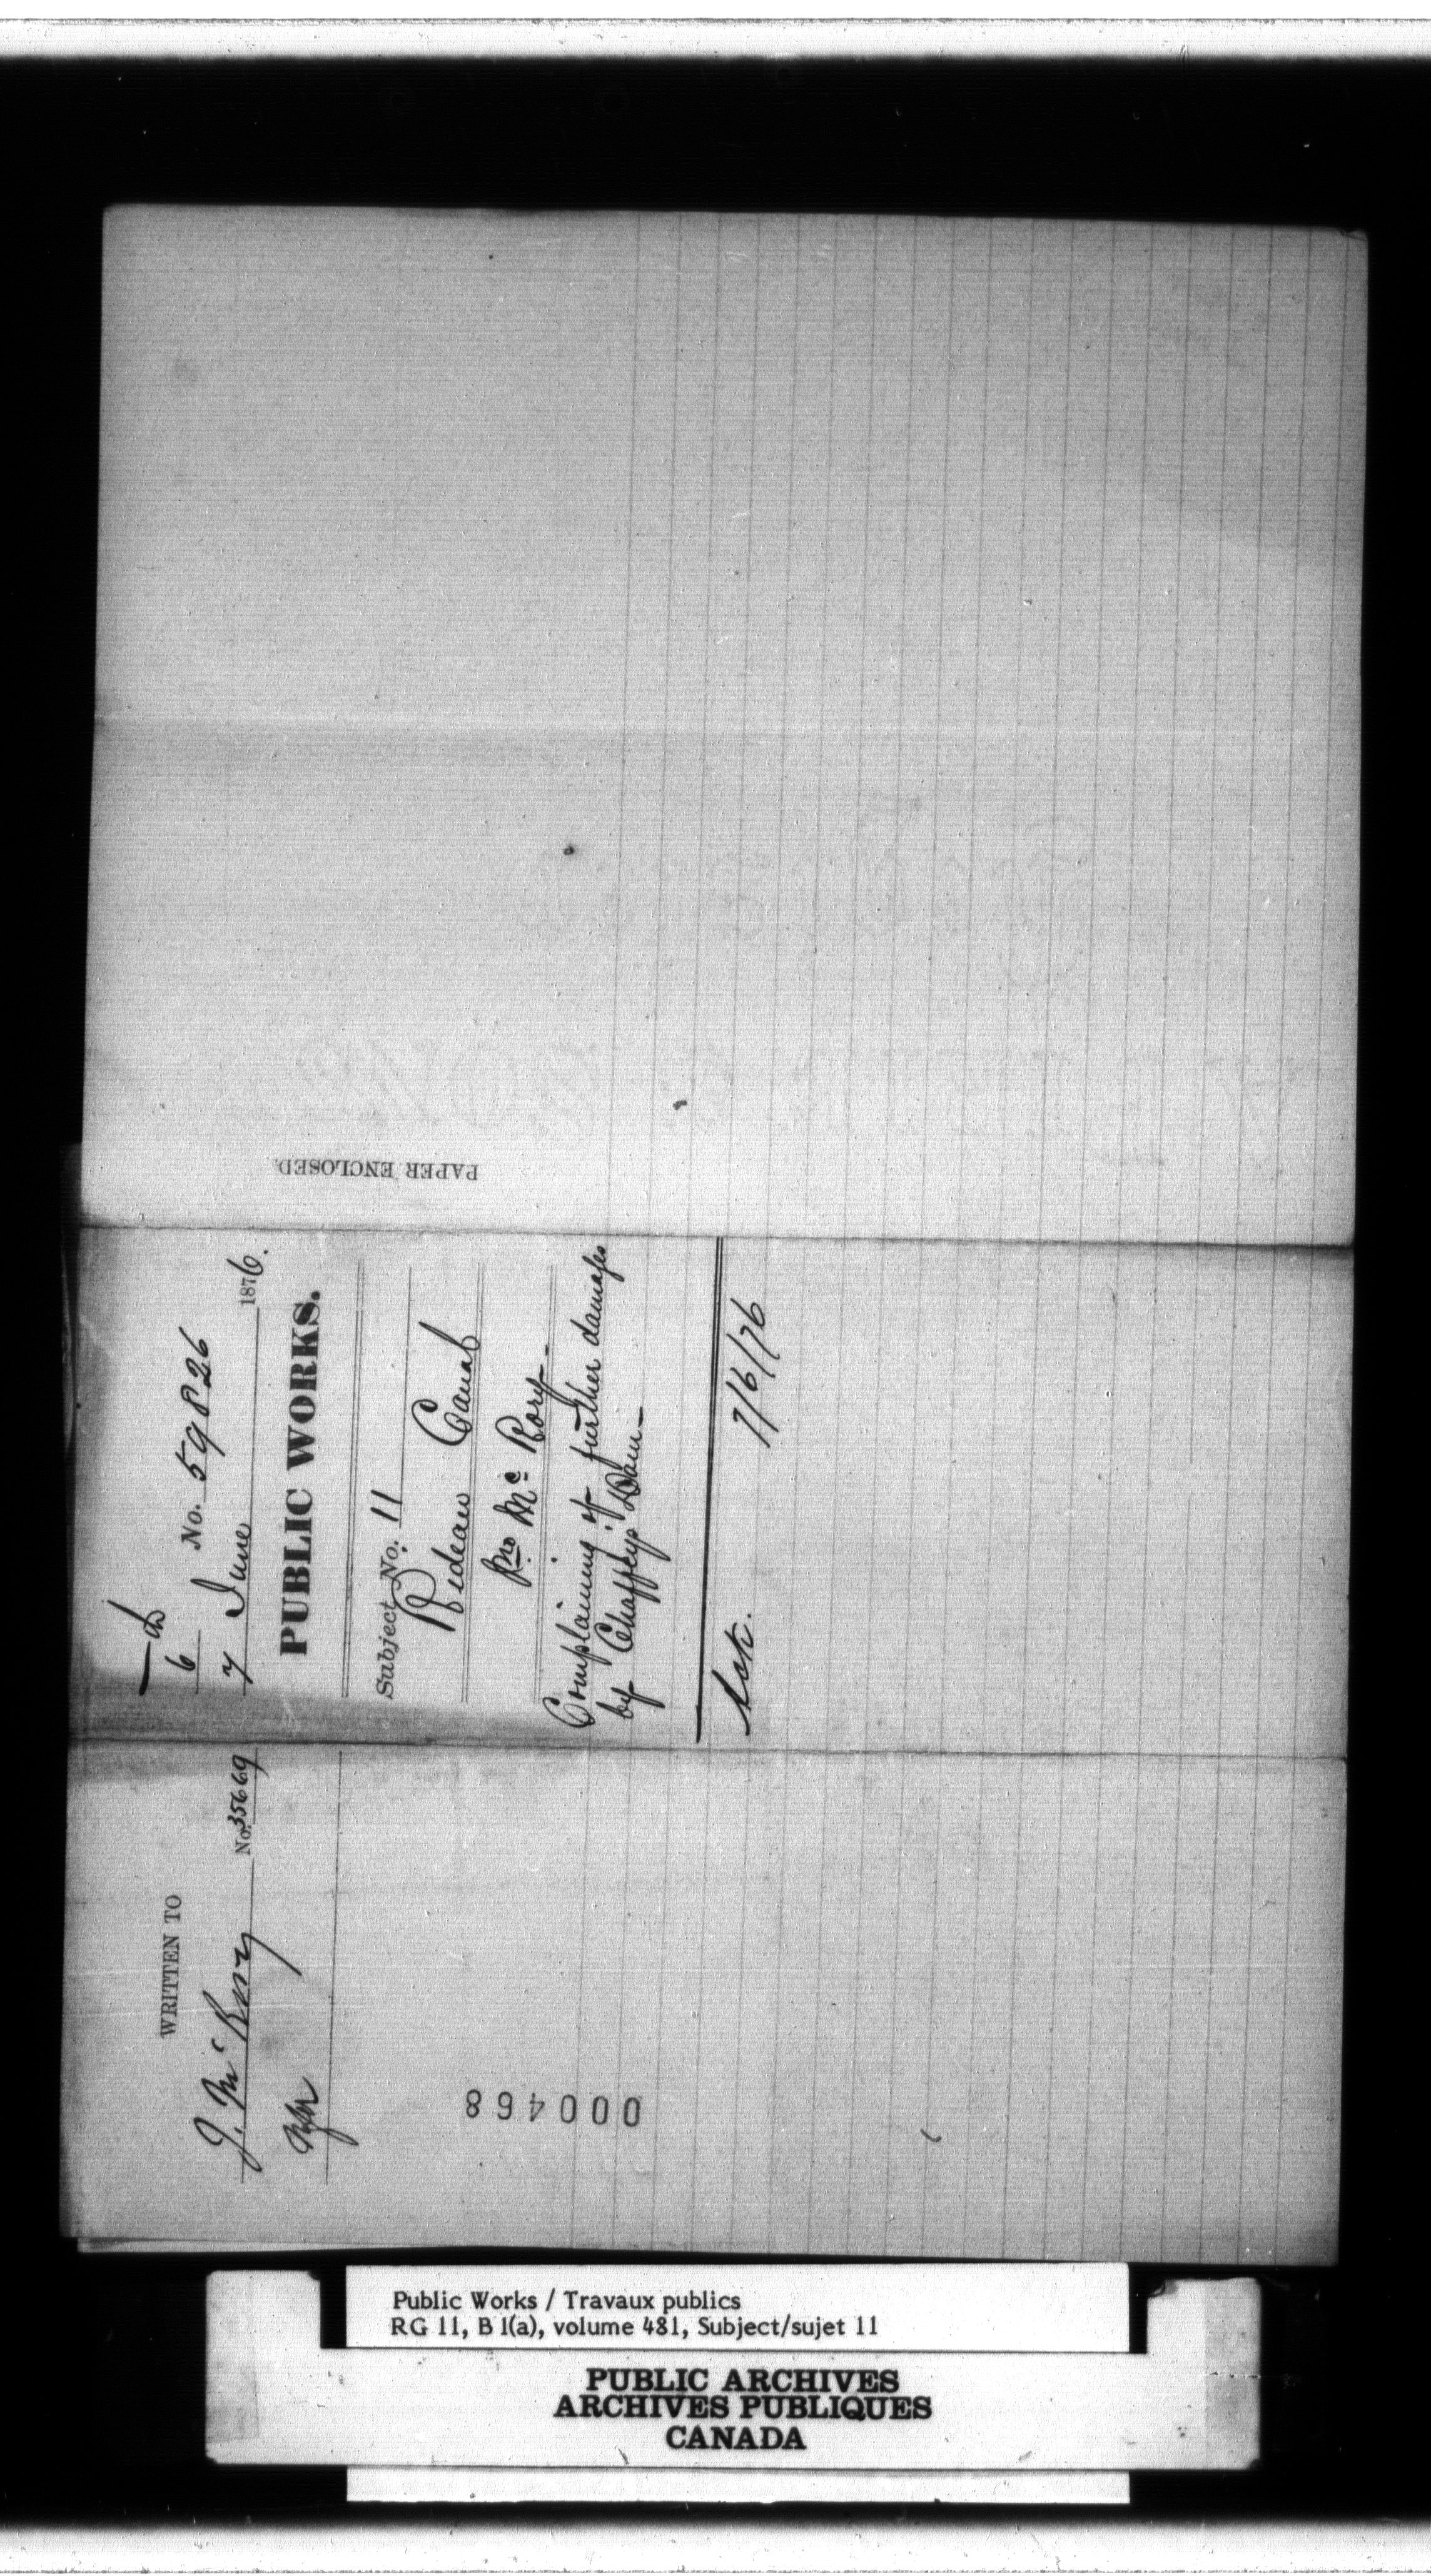 PAPER ENCLOSED.
6 No. 59826
7 June 1876.
PUBLIC WORKS.
Subject No. 11
Rideau Canal
Jno Mc Rory -
Complaining of further damages
by Chaffeys Dam -
Ack. 7/6/76
WRITTEN TO
J. McRory No. 35669
000468
Public Works / Travaux publics
RG 11, B 1(a), volume 481, Subject/sujet 11
PUBLIC ARCHIVES
ARCHIVES PUBLIQUES
CANADA